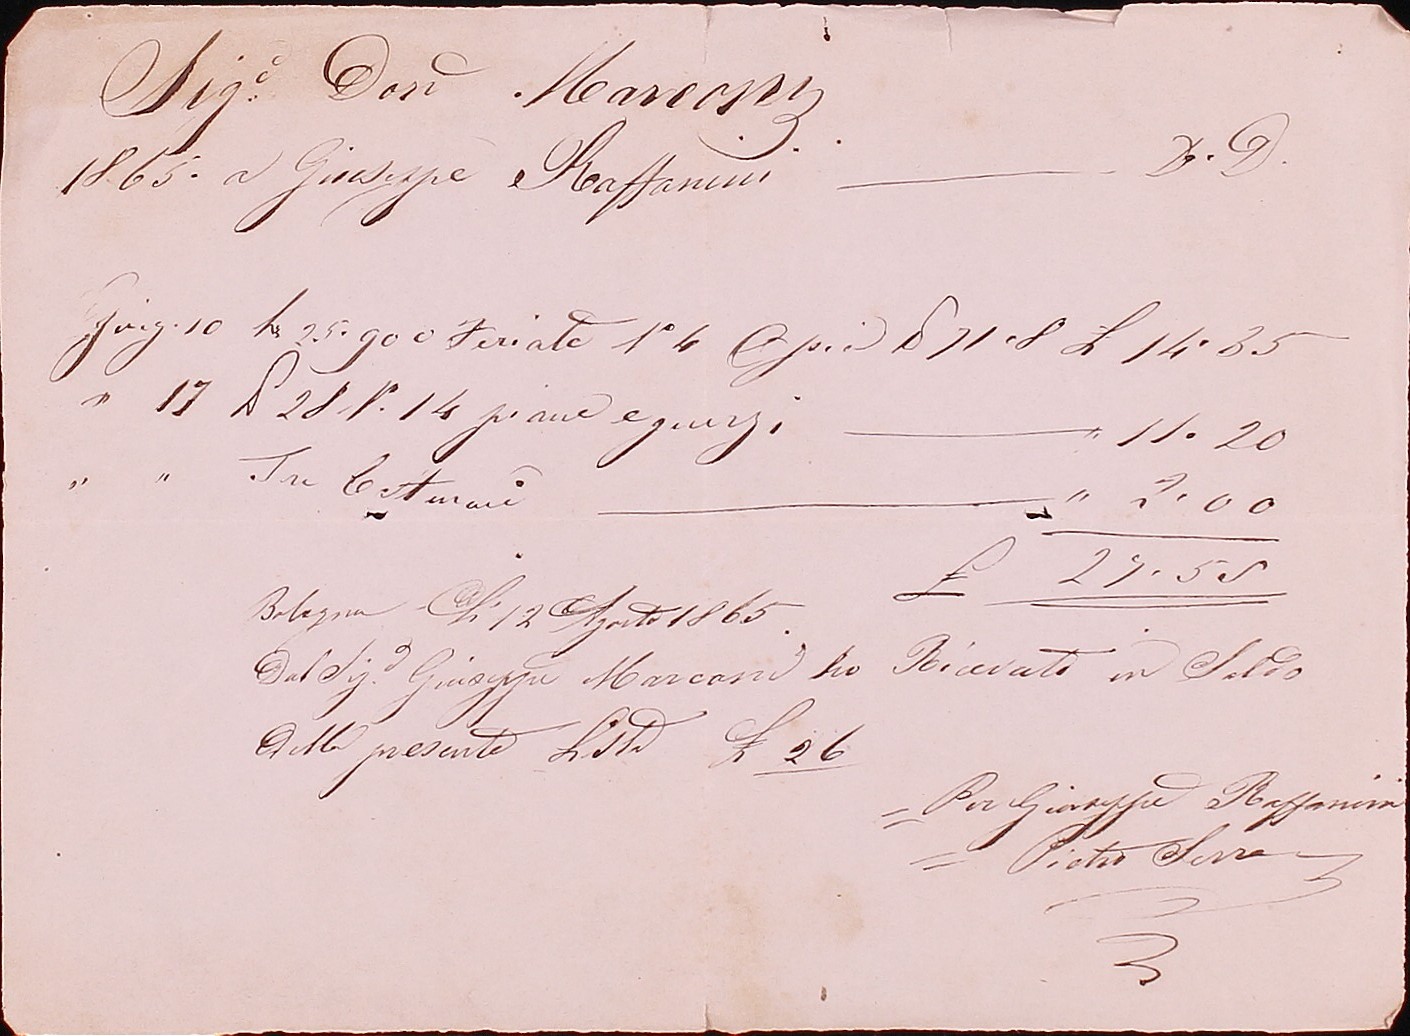 Sig.r Don Marconi
1865. a Giuseppe Raffanini D. D.
Giug. 10 25.900 Feriate N° 4 £ 14.35
" 17 28 N. 14 piane e " 11.20
" " Tre " 2.00
£ 27.55
Bologna Li 12 Agosto 1865.
Dal Sig.r Giuseppe Marconi ho Ricevuto in Saldo
della presente Lista £ 26
= Per Giuseppe Raffanini
= Pietro Serra